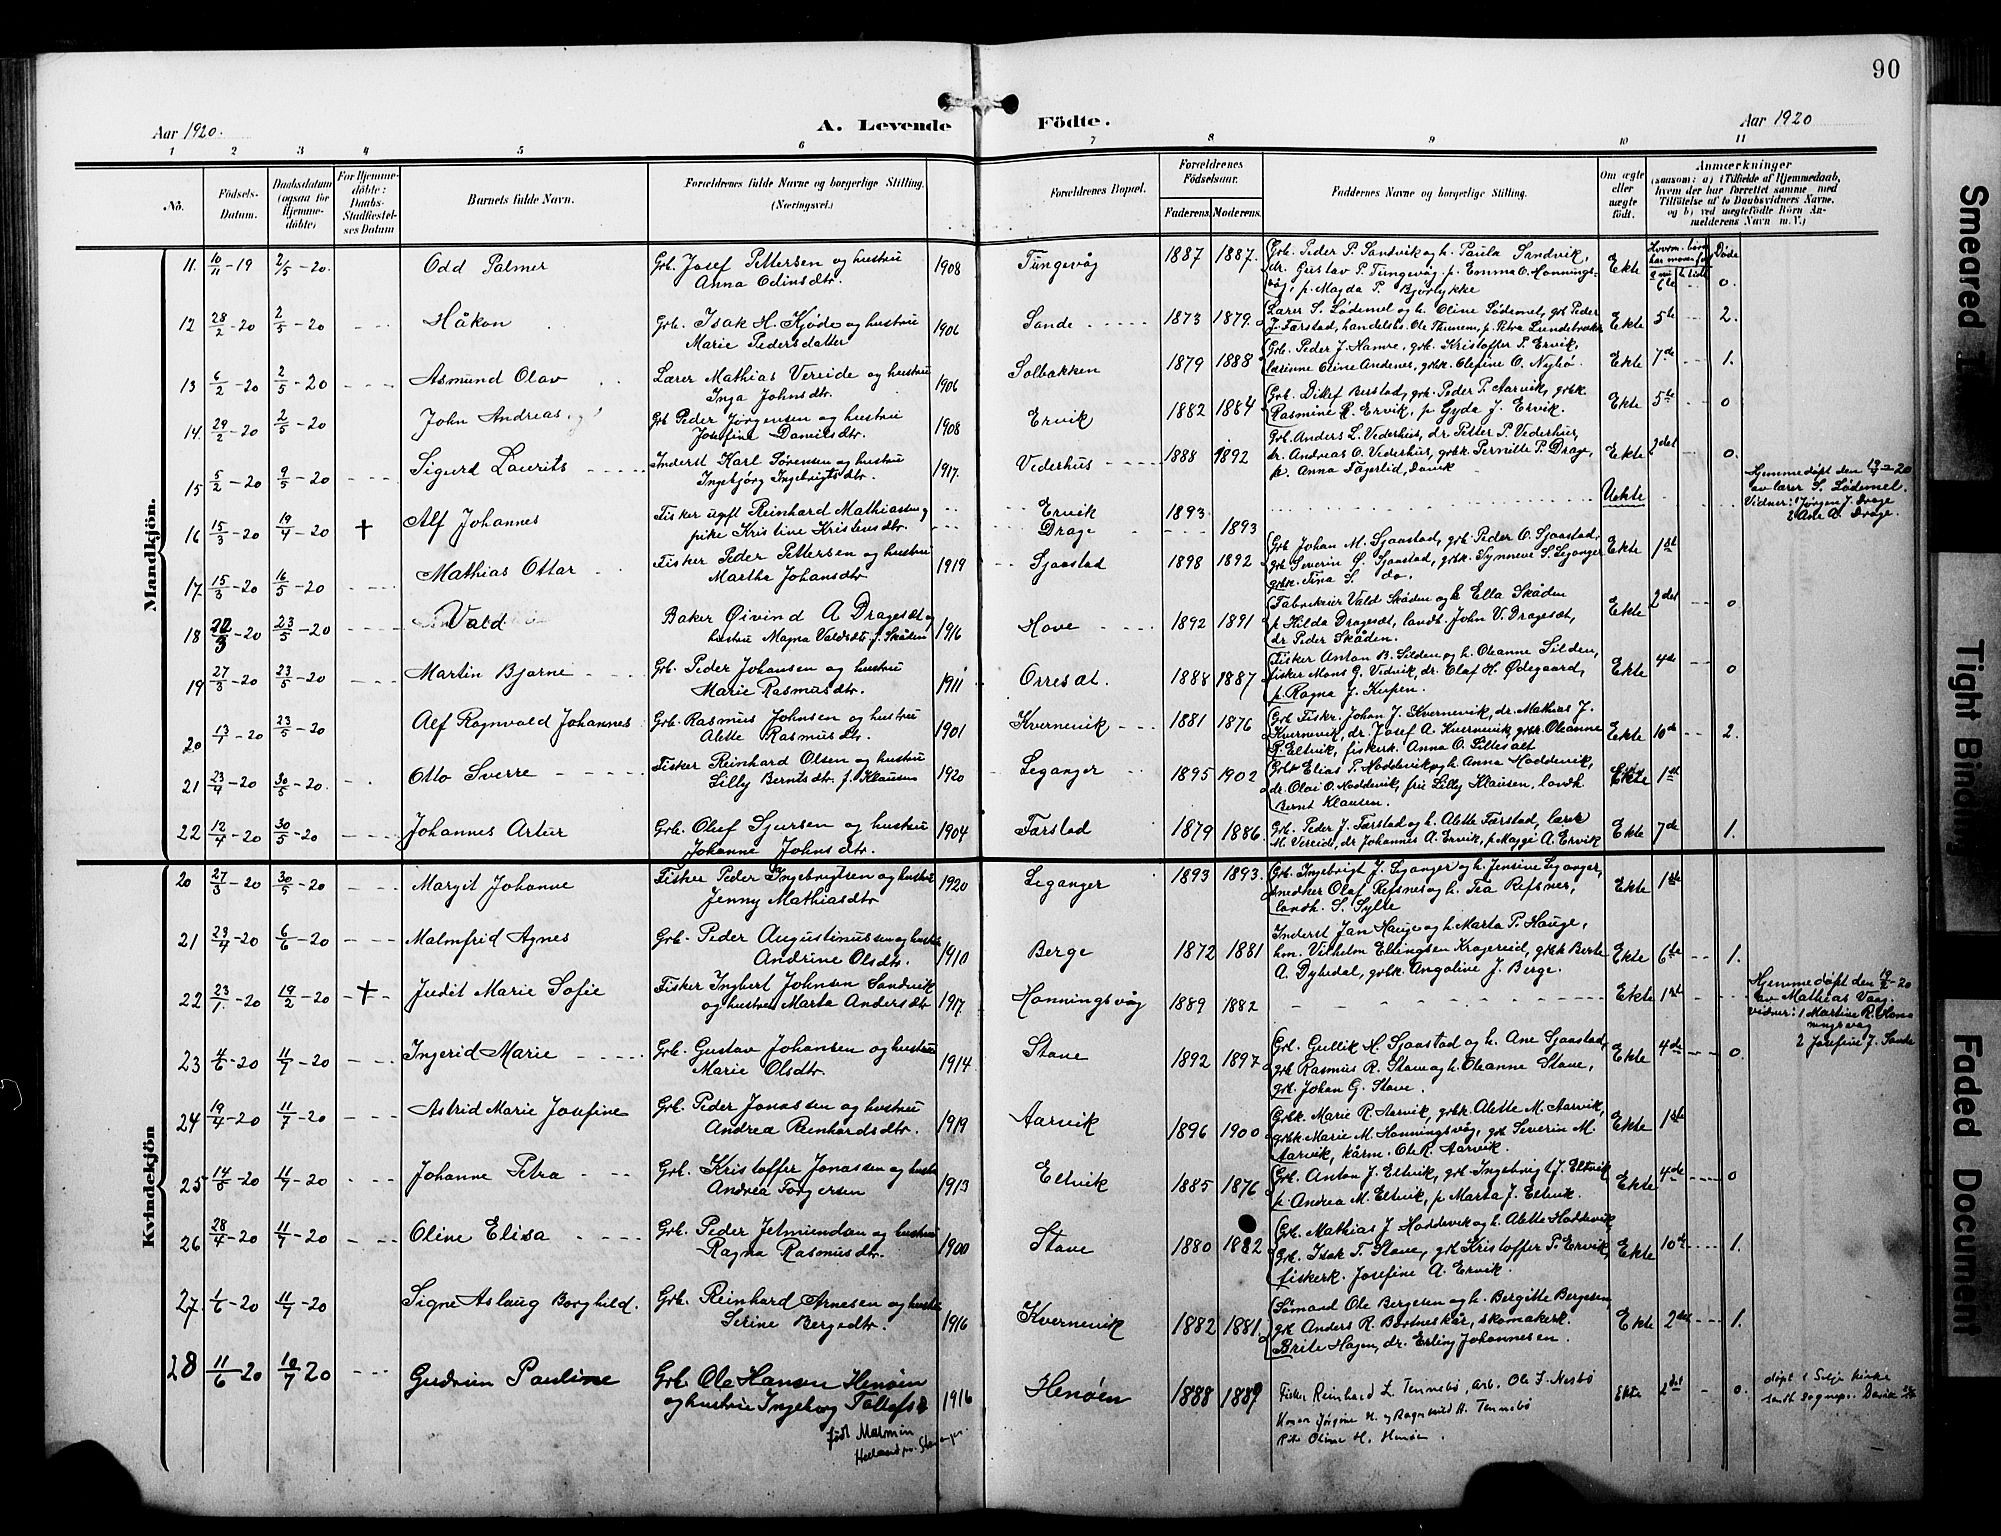 90
Aar 1920.
A. Levende Födte.
Aar 1920
1 2 3 4 5 6 7 8 9 10 11
No.
Födsels-Datum.
Daabsdatum (ogsaa for Hjemmedöbte)
For Hjemmedöbte: Daabs-Stadfæstelses Datum
Barnets fulde Navn.
Forældrenes fulde Navne og borgerlige Stilling. (Næringsvei.)
Forældrenes Bopæl.
Forældrenes Födselsaar.
Faderens. Moderens.
Faddernes Navne og borgerlige Stilling.
Om ægte eller uægte födt.
Anmærkninger
(saasom: a) i Tilfælde af Hjemmedaab, hvem der har forrettet samme, med Tilföielse af to Daabsvidners Navne, og b) ved uægtefödte Börn Anmelderens Navn m. V.)
Mandkjön.
11. 10/11-19 2/5-20. Odd Palmer Grb. Josef Pettersen og hustru 1908 Tungevåg 1887 1887. Grb. Peder P. Sandvik og h. Paula Sandvik, Ekte 6te 0.
Anna Odinsdtr. dr. Gustav P. Tungevåg, p. Emma O. Honningsvåg, p. Magda P. Bjørlykke
12 28/2-20 2/5-20 Håkon Grb. Isak H. Kjøde og hustru 1906 Sande 1873 1879. Lærer S. Lødemel og h. Oline Lødemel, grb Peder Ekte 5te 2.
Marie Pedersdatter J. Færstad, handelsb. Ole Thunem, p. Petra Lundebrekke
13 6/2-20 2/5-20 Asmund Olav Lærer Mathias Vereide og hustru 1906 Solbakken 1879 1888 Grb. Peder J. Hamre, grb. Kristoffer P. Ervik, Ekte 7de 1.
Inga Johnsdtr. lærinne Oline Andenes, grbk. Olefine O. Nybø
14. 29/2-20 2/5-20 John Andreas Grb Peder Jørgensen og hustru 1908 Ervik 1882 1884 Grb. Ditlef Berstad, grb. Peder P. Aarvik, grbk. Ekte 5te 0
Josefine Danielsdtr. Rasmine R. Ervik, p Gyda J. Ervik.
15 5/2-20 9/5-20 Sigurd Laurits Inderst Karl Sørensen og hustru 1917. Vederhus 1888 1892 Grb. Anders L. Vederhus, dr. Petter P. Vederhus, Ekte 2det 0.
Ingebjørg Ingebrigtsdtr. dr. Andreas O. Vederhus, grbk. Pernille P. Drage, p. Anna Fagerlid, Davik
16 15/3-20 19/4-20 + Alf Johannes Fisker ugift Reinhard Mathiassen og Ervik 1893 Uekte
pike Kristine Kristensdtr. Drage 1893
Hjemmedøpt den 19/4-20
av lærer S. Lødemel.
Vidner: 1 Jørgen J. Drage
2 Ade A. Drage.
17. 15/3-20 16/5-20 Mathias Ottar Fisker Peder Pettersen og hustru 1919 Sjaastad 1898 1892 Grb Johan M. Sjaastad, grb. Peder O. Sjaastad, Ekte 1st
Marthe Johansdtr. grb Severin O. Sjaastad, grbk. Synneve S. Leganger grbk. Tina S. do.
18 22/3-20 23/5-20 Vald Baker Øivind A Dragesæt og 1916 Hove 1892 1891 Fabrikeier Vald Skåden og h. Ella Skåden Ekte 2det 0
hustru Magna Valdsdtr f. Skåden p Hilda Dragesæt, landh. John V. Dragesæt, dr Peder Skåden.
19 27/3-20 23/5-20 Martin Bjarne Grb. Peder Johansen og hustru 1911 Orresæt 1888 1887 Fisker Anton B. Silden og h. Oleanne Silden, Ekte 4de 0
Marie Rasmusdtr. fisker Mons G. Vedvik, dr. Olaf H. Ødegaard, p. Ragna J. Kupen.
20 13/1-20 23/5-20 Alf Ragnvald Johannes Grb. Rasmus Johnsen og hustru 1901 Kvernevik 1881 1876 Grb. Fiskr. Johan J. Kvernevik, dr. Mathias J. Ekte 10de 2.
Alette Rasmusdtr. Kvernevik, dr. Josef A. Kvernevik, grbk. Oleanne P. Eltvik, fiskerk. Anna O. Sillesæt
21 23/4-20 30/5-20. Otto Sverre Fisker Reinhard Olsen og hustru 1920 Leganger 1895 1902 Grbr Elias P. Hoddevik og h. Anna Hoddevik, Ekte 1st
Lilly Berntsdtr. f. Klausen dr. Olai O. Hoddevik, frk Lilly Klausen, landh. Bernt Klausen.
22 12/4-20 30/5-20 Johannes Artur Grb. Oluf Sjursen og hustru 1904 Færstad 1879 1886. Grb. Peder J. Færstad og h. Alette Færstad, lærer Ekte 7de 1.
Johanne Johnsdtr. M. Vereide, dr Johannes A. Ervik, p. Maggi A. Ervik
Kvindekjön
20 27/3-20 30/5-20 Margit Johanne Fisker Peder Ingebrigtsen og hustru 1920 Leganger 1893 1893. Grb. Ingebrigt J. Leganger og h. Jensine Leganger, Ekte 1ste
Jenny Mathiasdtr snedker Olaf Refsnes og h. Tea Refsnes, landh. S. Sylte
21 23/4-20 6/6-20 Malmfrid Agnes Grb. Peder Augustinussen og hustru 1910 Berge 1872 1881 Inderst Jan Hauge og h. Marta P. Hauge, Ekte 6te 1.
Andrine Olsdtr. hm. Vilhelm Ellingsen Kragereid, grbk Berte A. Dybedal, grbk. Angoline J. Berge.
22 23/1-20 19/2-20 + Judit Marie Sofie Fisker Ingbert Johnsen Sandvik 1917. Honningsvåg 1889 1882 Ekte 1st
og hustru Marta Andersdtr
Hjemmedøpt den 19/2-20
av Mathias Vaag.
vidner: 1 Martine R. Honningsvag
2 Josefine J. Sande
23 4/6-20 11/7-20 Ingerid Marie Grb. Gustav Johansen og hustru 1914 Stave 1892 1897 Grb. Gullik H. Sjaastad og h. Ane Sjaastad, Ekte 4de 0.
Marie Olsdtr. grb Rasmus R. Stave og h. Oleanne Stave, grb. Johan G. Stave.
24 19/4-20 11/7-20 Astrid Marie Josefine Grb. Peder Jonassen og hustru 1919 Aarvik 1896 1900 Grbk. Marie R. Aarvik, grbk. Alette M. Aarvik, Ekte 1ste
Andrea Reinhardsdtr. grbk Marie M. Honningsvåg, grb Severin M. Aarvik, kårm. Ole R. Aarvik.
25 14/5-20 11/7-20 Johanne Petra Grb. Kristoffer Jonassen og hustru 1913 Eltvik 1885 1876 Grb. Anton J. Eltvik, grb. Ingebrigt J. Eltvik Ekte 4de 0
Andrea Torgersen p. Andrea M. Eltvik, p Marta J. Eltvik.
26 28/4-20 11/7-20 Oline Elisa Grb. Peder Jetmundsen og hustru 1900 Stave 1880 1882 Grb. Mathias J Hoddevik og h. Alette Hoddevik Ekte 10de 1.
Ragna Rasmusdtr. Grb. Isak T. Stave, grb Kristoffer P. Ervik, fiskerk. Josefine A. Ervik.
27. 1/6-20 11/7-20 Signe Aslaug Borghild. Grb. Reinhard Arnesen og hustru 1916 Kvernevik 1882 1881 Sømand Ole Bergesen og h. Bergitte Bergesen, Ekte 2det 1.
Serine Bergsdtr. grb Anders R. Bortneskår, skomakerk. Brite Hagen, dr. Erling Johannesen.
28 11/6-20 10/7-20 Gudrun Pauline Grb. Ole Hansen Henøen 1916 Henøen 1888 1889 Fisker Reinhard L. Tennebø, arb. Ole J. Nesbø Ekte 2det 0.
og hustru Ingeborg Tollefsd Konen Jørgine H. og Ragnhild H. Tennebø
født Malmin Pike Oline H. Henøen.
døpt i Selje kirke
Smeared
Tight Binding
Faded Document